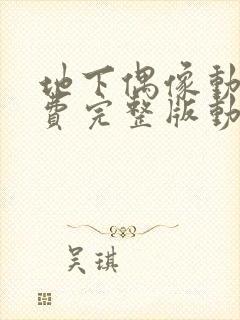 地下偶像動
費完整版動
吴琪